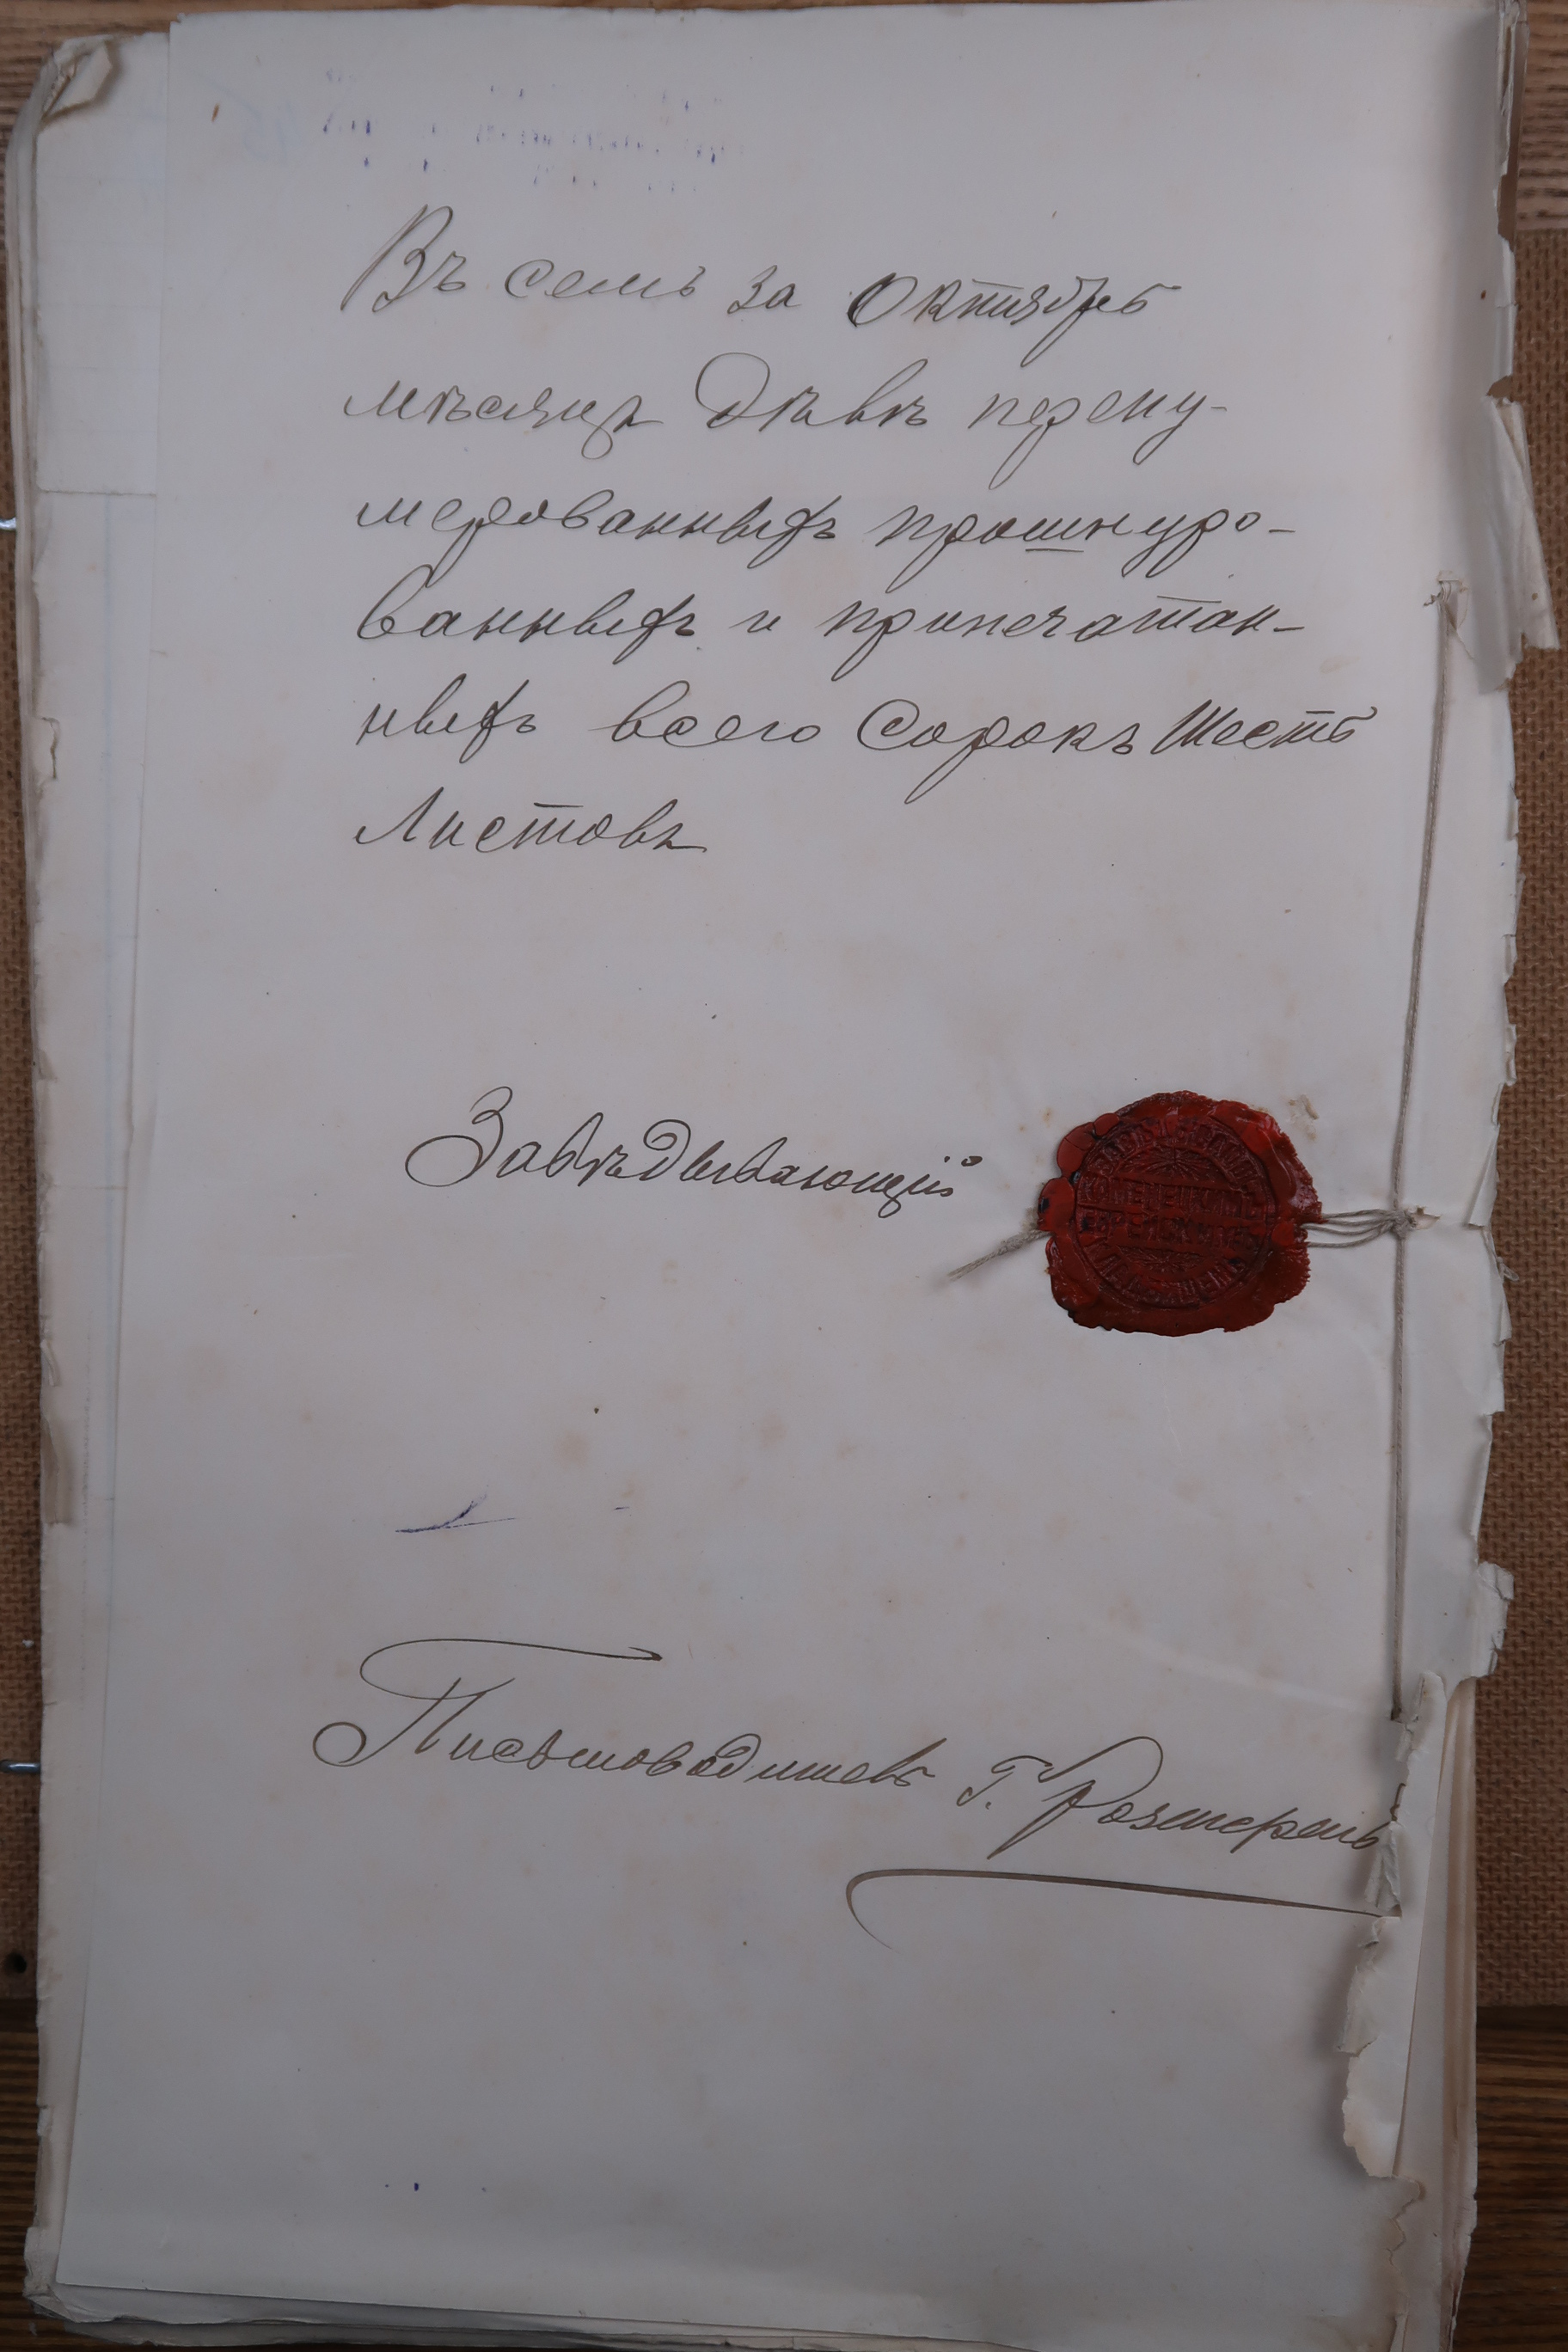 Въ семъ за Октябрь
мѣсяцъ дѣлѣ перену-
мерованныхъ прошнуро-
ванныхъ и припечатан-
ныхъ всего Сорокъ Шесть
Листовъ
Завѣдывающій
Письмоводитель Г.